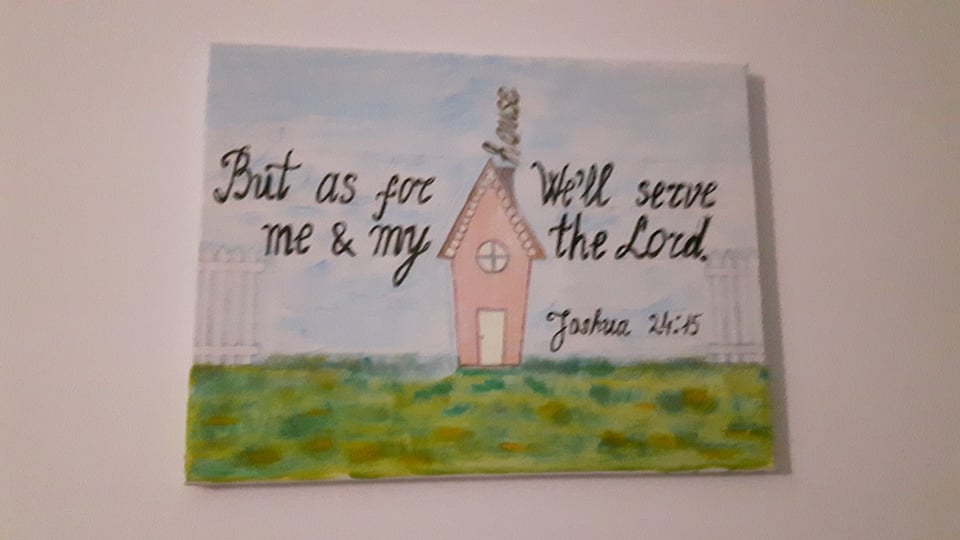 But as for
me & my
house
We'll serve
the Lord.
Joshua 24:15